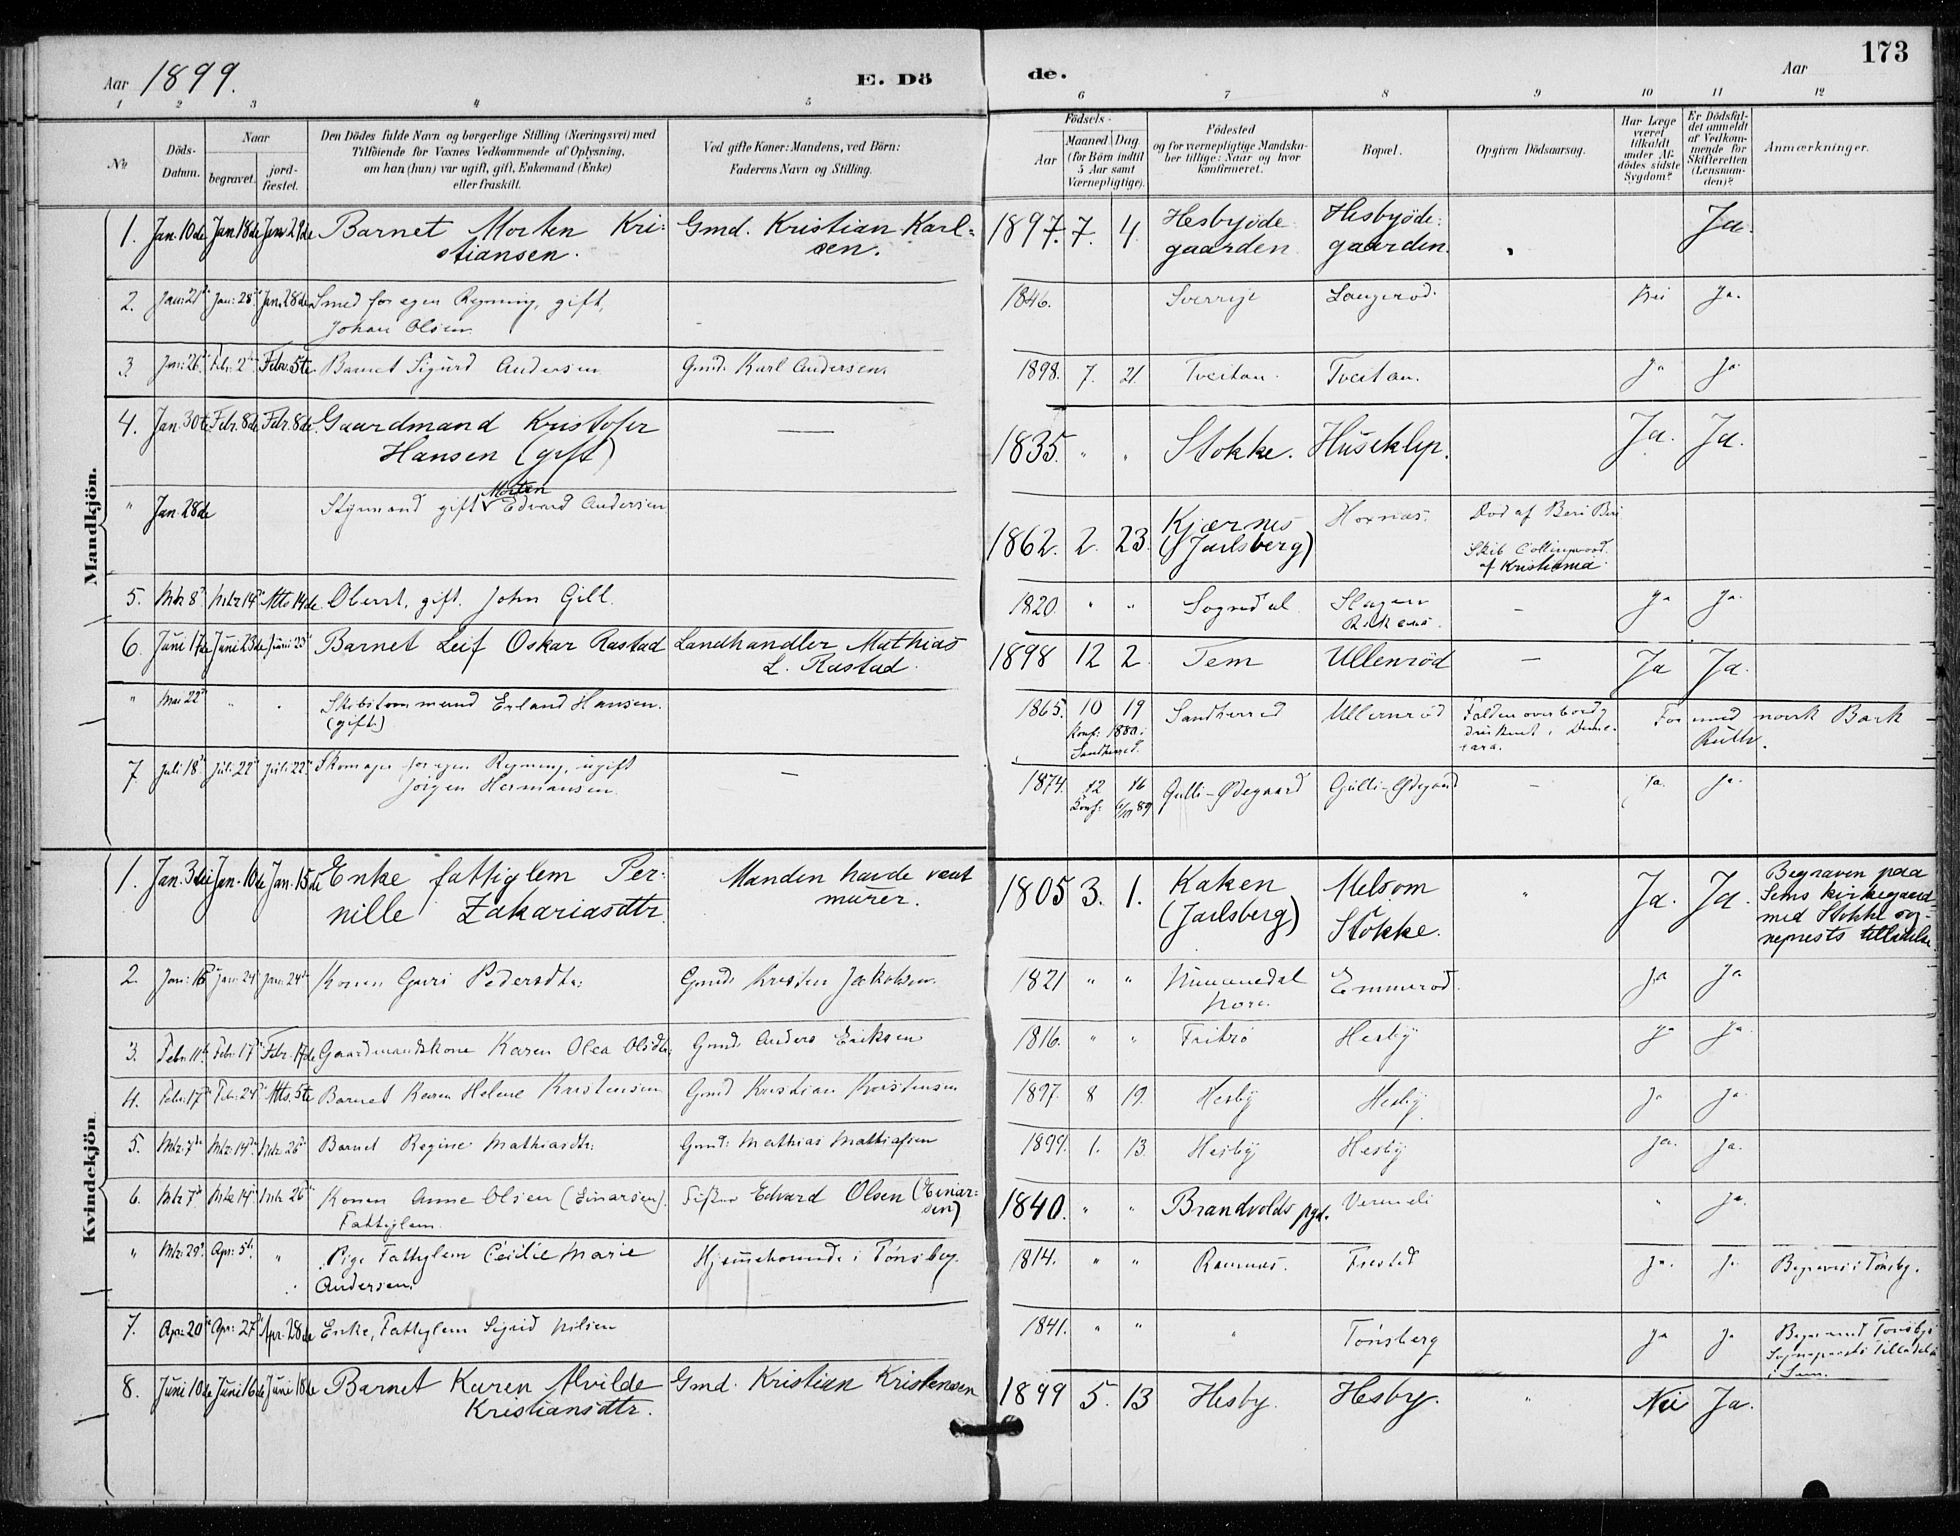 Aar 1899. E. Dö de. Aar 173
1 2 3 4 5 6 7 8 9 10 11 12
No
Döds-Datum.
Naar
begravet.
jord-fæstet.
Den Dödes fulde Navn og borgerlige Stilling (Næringsvei) med
Tilföiende for Voxnes Vedkommende af Oplysning,
om han (hun) var ugift, gift, Enkemand (Enke)
eller fraskilt.
Ved gifte Koner: Mandens, ved Börn:
Faderens Navn og Stilling.
Födsels-
Aar
Maaned Dag
(for Börn indtil
5 Aar samt
Værnepligtige).
Födested
og for værnepligtige Mandska-
ber tillige: Naar og hvor
konfirmeret.
Bopæl.
Opgiven Dödsaarsag.
Har Læge
været
tilkaldt
under Af-
dödes sidste
Sygdom?
Er Dödsfal-
det anmeldt
af Vedkom-
mende for
Skifteretten
(Lensman-
den)?
Anmærkninger.
Mandkjön.
1. Jan. 10de Jan 18de Jan 29de Barnet Morten Kri- Gmd. Kristian Karl- 1897. 7. 4 Hesbyöde Hesbyöde- Ja.
stiansen. sen. gaarden gaarden.
2. Jan: 21 Jan: 28 Jan. 28de Smed for egen Regning, gift, 1846. Sverrige Nei Ja.
Johan Olsen.
3. Jan: 26 Febr. 2 Febr. 5te Barnet Sigurd Andersen Gmd. Karl Andersen. 1898. 7. 21. Tveitan. Tveitan. Ja Ja
4. Jan. 30te Febr. 8de Febr. 8de Gaardmand Kristofer — 1835. " " Stokke. Huseklep. Ja. Ja.
Hansen (gift)
" Jan. 28de Styrmand gift Morten Edvard Andersen 1862. 2. 23. Kjærnes Hoxnæs. Död af Beri Beri
(Jarlsberg) Skib Collingwood.
af Kristiania.
5. Mrts 8 Mrts 14 Mts 14de Oberst, gift. John Gill. 1820 " " Sogndal Slagen — Ja Ja.
6. Juni 17de Juni 23de Juni 25 Barnet Leif Oskar Rastad Landhandler Mathias 1898 12 2. Sem Ullenröd — Ja Ja.
L. Rastad.
" Mai 22 " . Skibstömmermand Erland Hansen. 1865. 10 19 Sandherred Ullernröd Falden overbord, For med norsk Bark
(gift) Konf: 1880. druknet i Deme- Ruth.
Sandherred. rara.
7. Juli 18 Juli: 22 Juli: 22 Skomager for egen Regning, ugift — 1874. 12 16 Gulli-Ödegaard Gulli-Ödegaard — Ja. Ja.
Jörgen Hermansen. Konf: 89
Kvindekjön.
1. Jan. 3die Jan. 10de Jan. 15de Enke fattiglem Per- Manden havde været 1805 3. 1. Kaken Melsom " Ja. Ja. Begraven paa
nille Zakariasdtr. murer. (Jarlsberg) i Stokke. Sems kirkegaard
med Stokke sog-
neprests tilladelse
2. Jan: 16 Jan: 24 Jan: 24 Konen Guri Pedersdtr: Gmd. Kristen Jakobsen. 1821 " " Numedal Emmeröd. Ja Ja
Nore.
3. Febr. 11 Febr. 17 Febr. 17de Gaardmandskone Karen Olea Olsdtr: Gmd. Anders Eriksen 1816. " " Fritzö Hesby Ja Ja.
4. Febr. 17 Febr. 24 Mts. 5te Barnet Karen Helene Kristensen Gmd Kristian Kristensen 1897. 8 19. Hesby Hesby Ja Ja.
5. Mrt. 7 Mrt. 14 Mrt. 26 Barnet Regine Mathiasdtr: Gmd: Mathias Mathiassen 1899. 1. 13. Hesby Hesby Ja. Ja.
6. Mrt. 7 Mrt 14 Mrt 26 Konen Anne Olsen (Einarsen). Edvard Olsen (Einar- 1840. " " Brandvolds pgd. " Ja.
Fattiglem. sen)
" Mrt. 29 Apr: 5 " Pige Fattiglem Cecilie Marie Hjemmehörende i Tönsberg. 1814. " " Ramnæs. Ja. Ja. Begraves i Tönsbg.
Andersen.
7. Apr: 20 Apr: 27 Apr. 28de Enke, Fattiglem Sigrid Nilsen 1841. " " " Tönsberg Ja Ja Begr. med Tönsbgs
Sogneprests Tilladelse
i Sem.
8. Juni 10de Juni 16de Juni 18de Barnet Karen Alvilde Gmd. Kristian Kristensen 1899 5. 13 Hesby. Hesby. " Nei Ja.
Kristiansdtr.